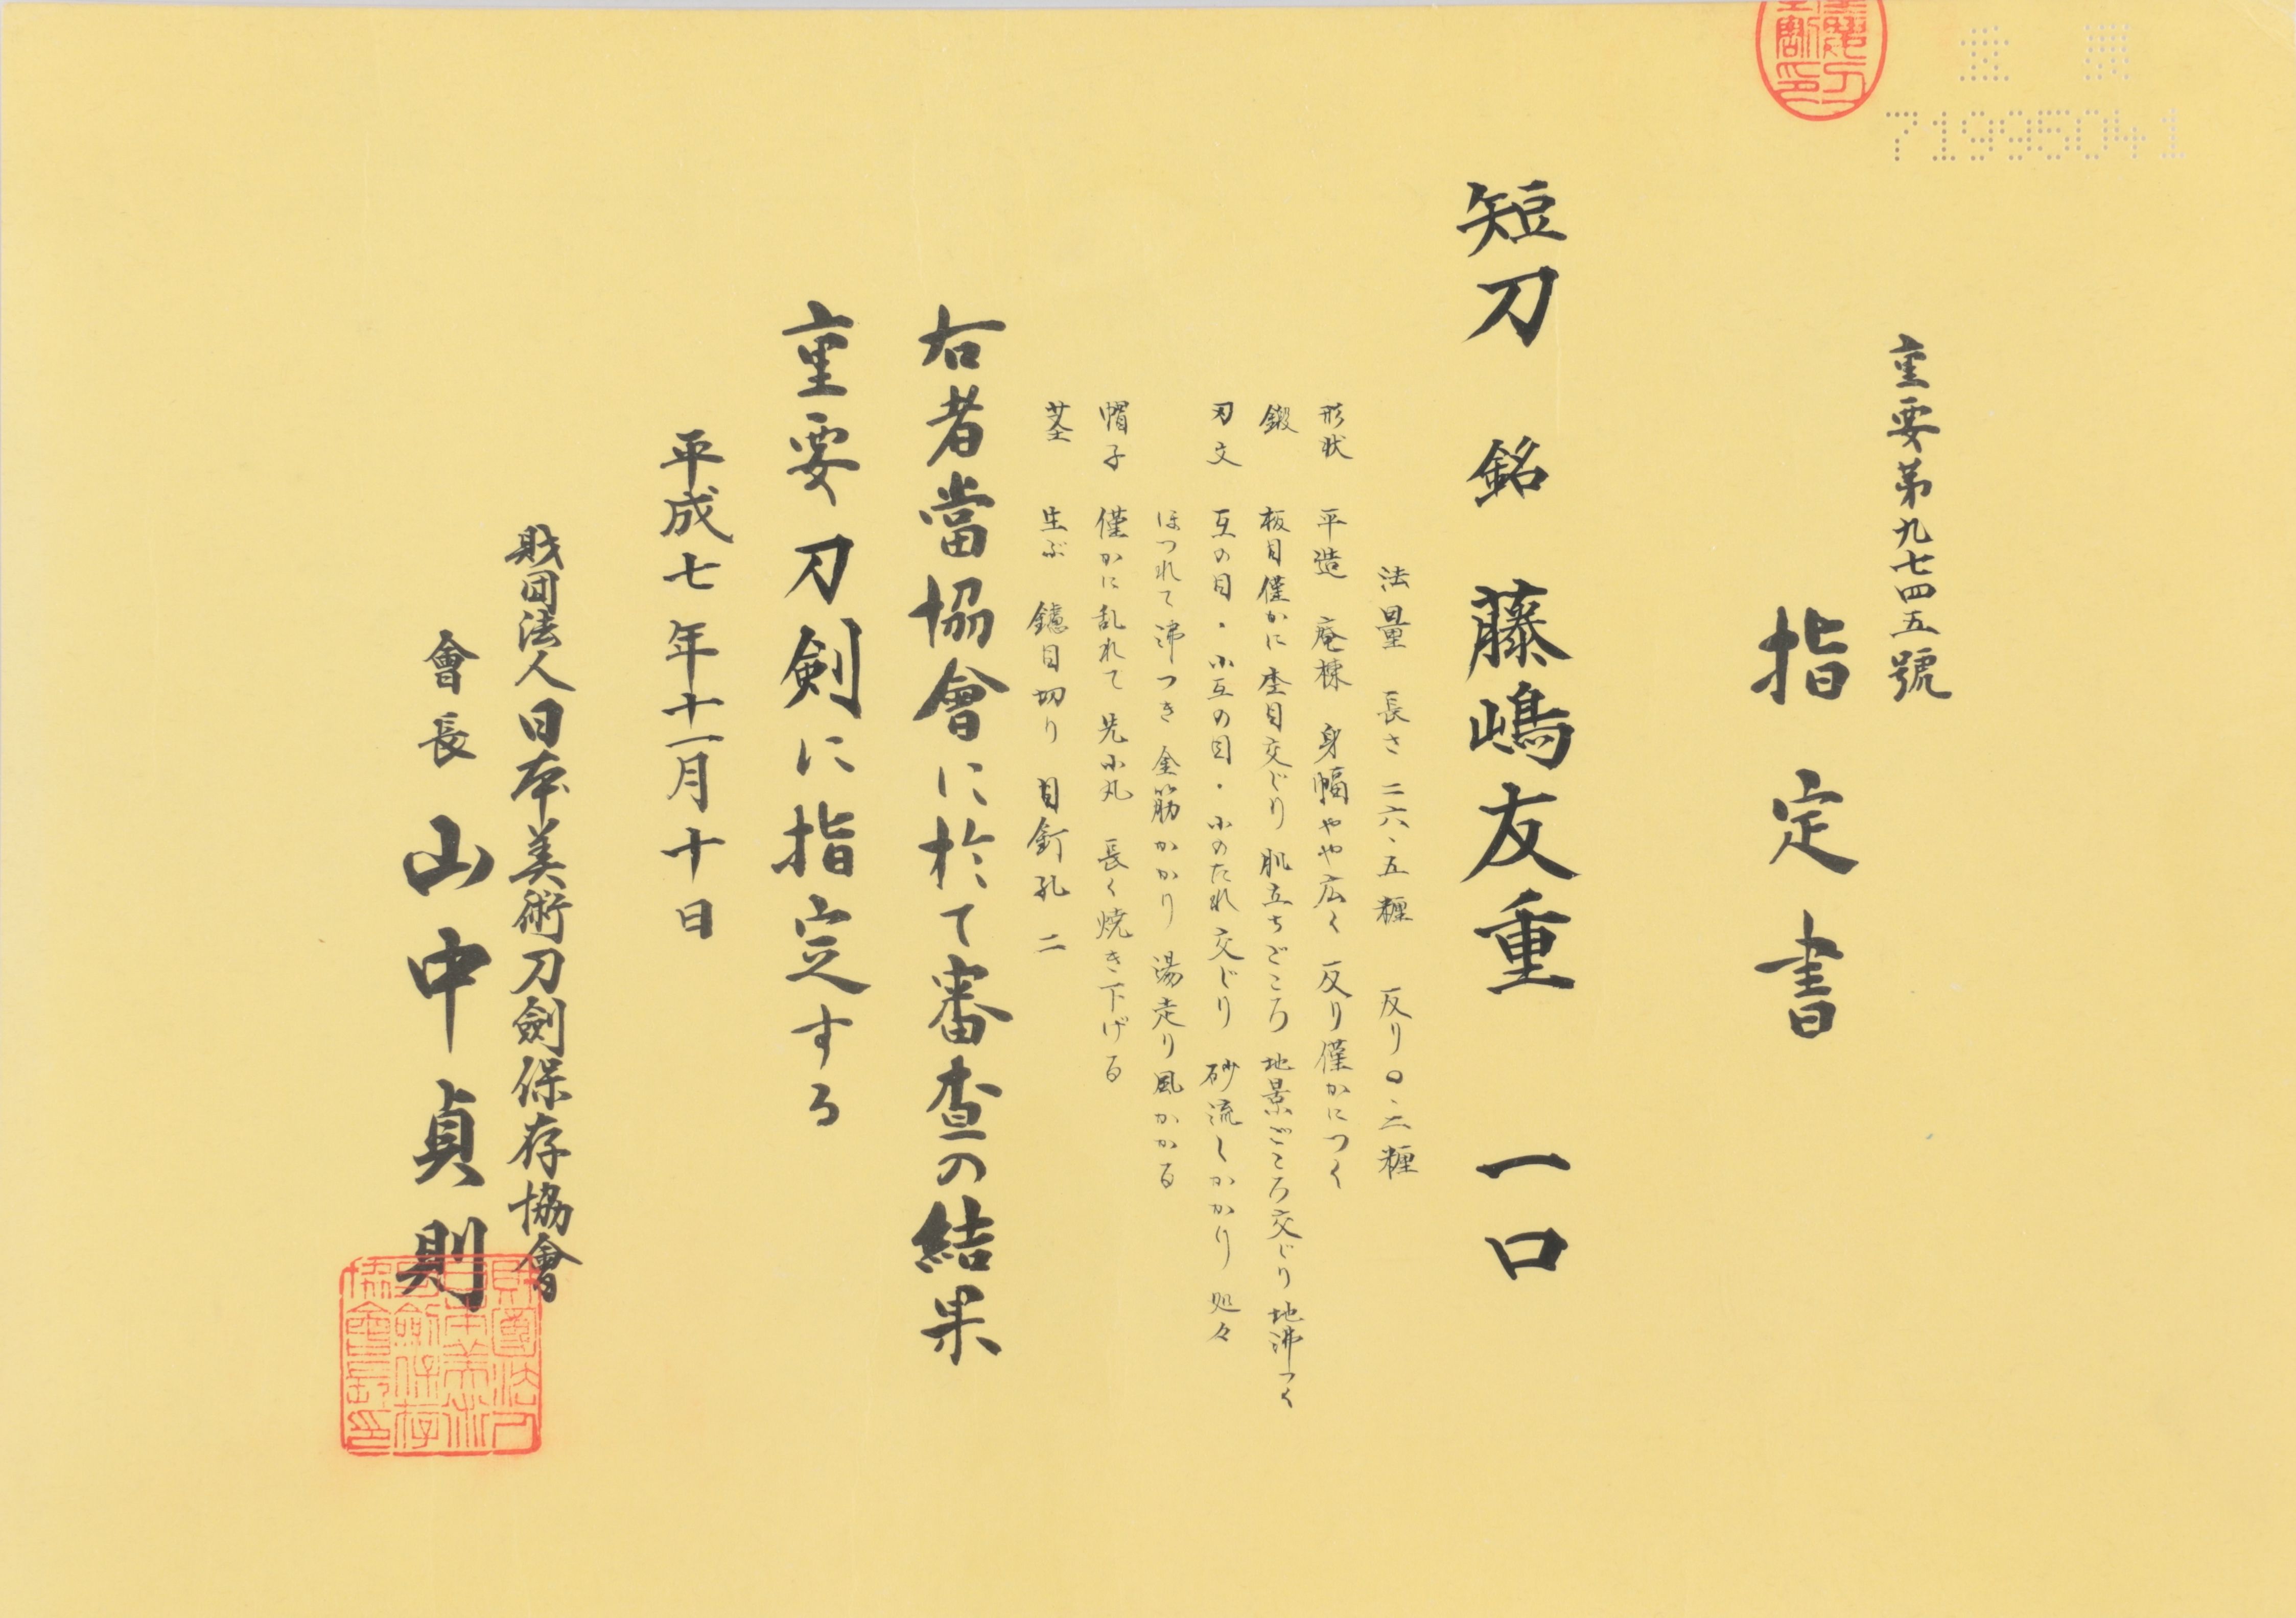 重要第九七四五號
指定書
短刀 銘 藤嶋友重 一口
法量 長さ 二六・五糎 反り〇・二糎
形状 平造 庵棟 身幅やや広く 反り僅かにつく
鍛 板目僅かに杢目交じり 肌立ちごころ 地景ごころ交じり 地沸つく
刃文 互の目・小互の目・小のたれ交じり 砂流しかかり 処々
ほつれて沸つき 金筋かかり 湯走り風かかる
帽子 僅かに乱れて 先小丸 長く焼き下げる
茎 生ぶ 鑢目切り 目釘孔 二
右者當協會に於て審査の結果
重要刀剣に指定する
平成七年十一月十日
財団法人日本美術刀劍保存協會
會長 山中貞則
71995041